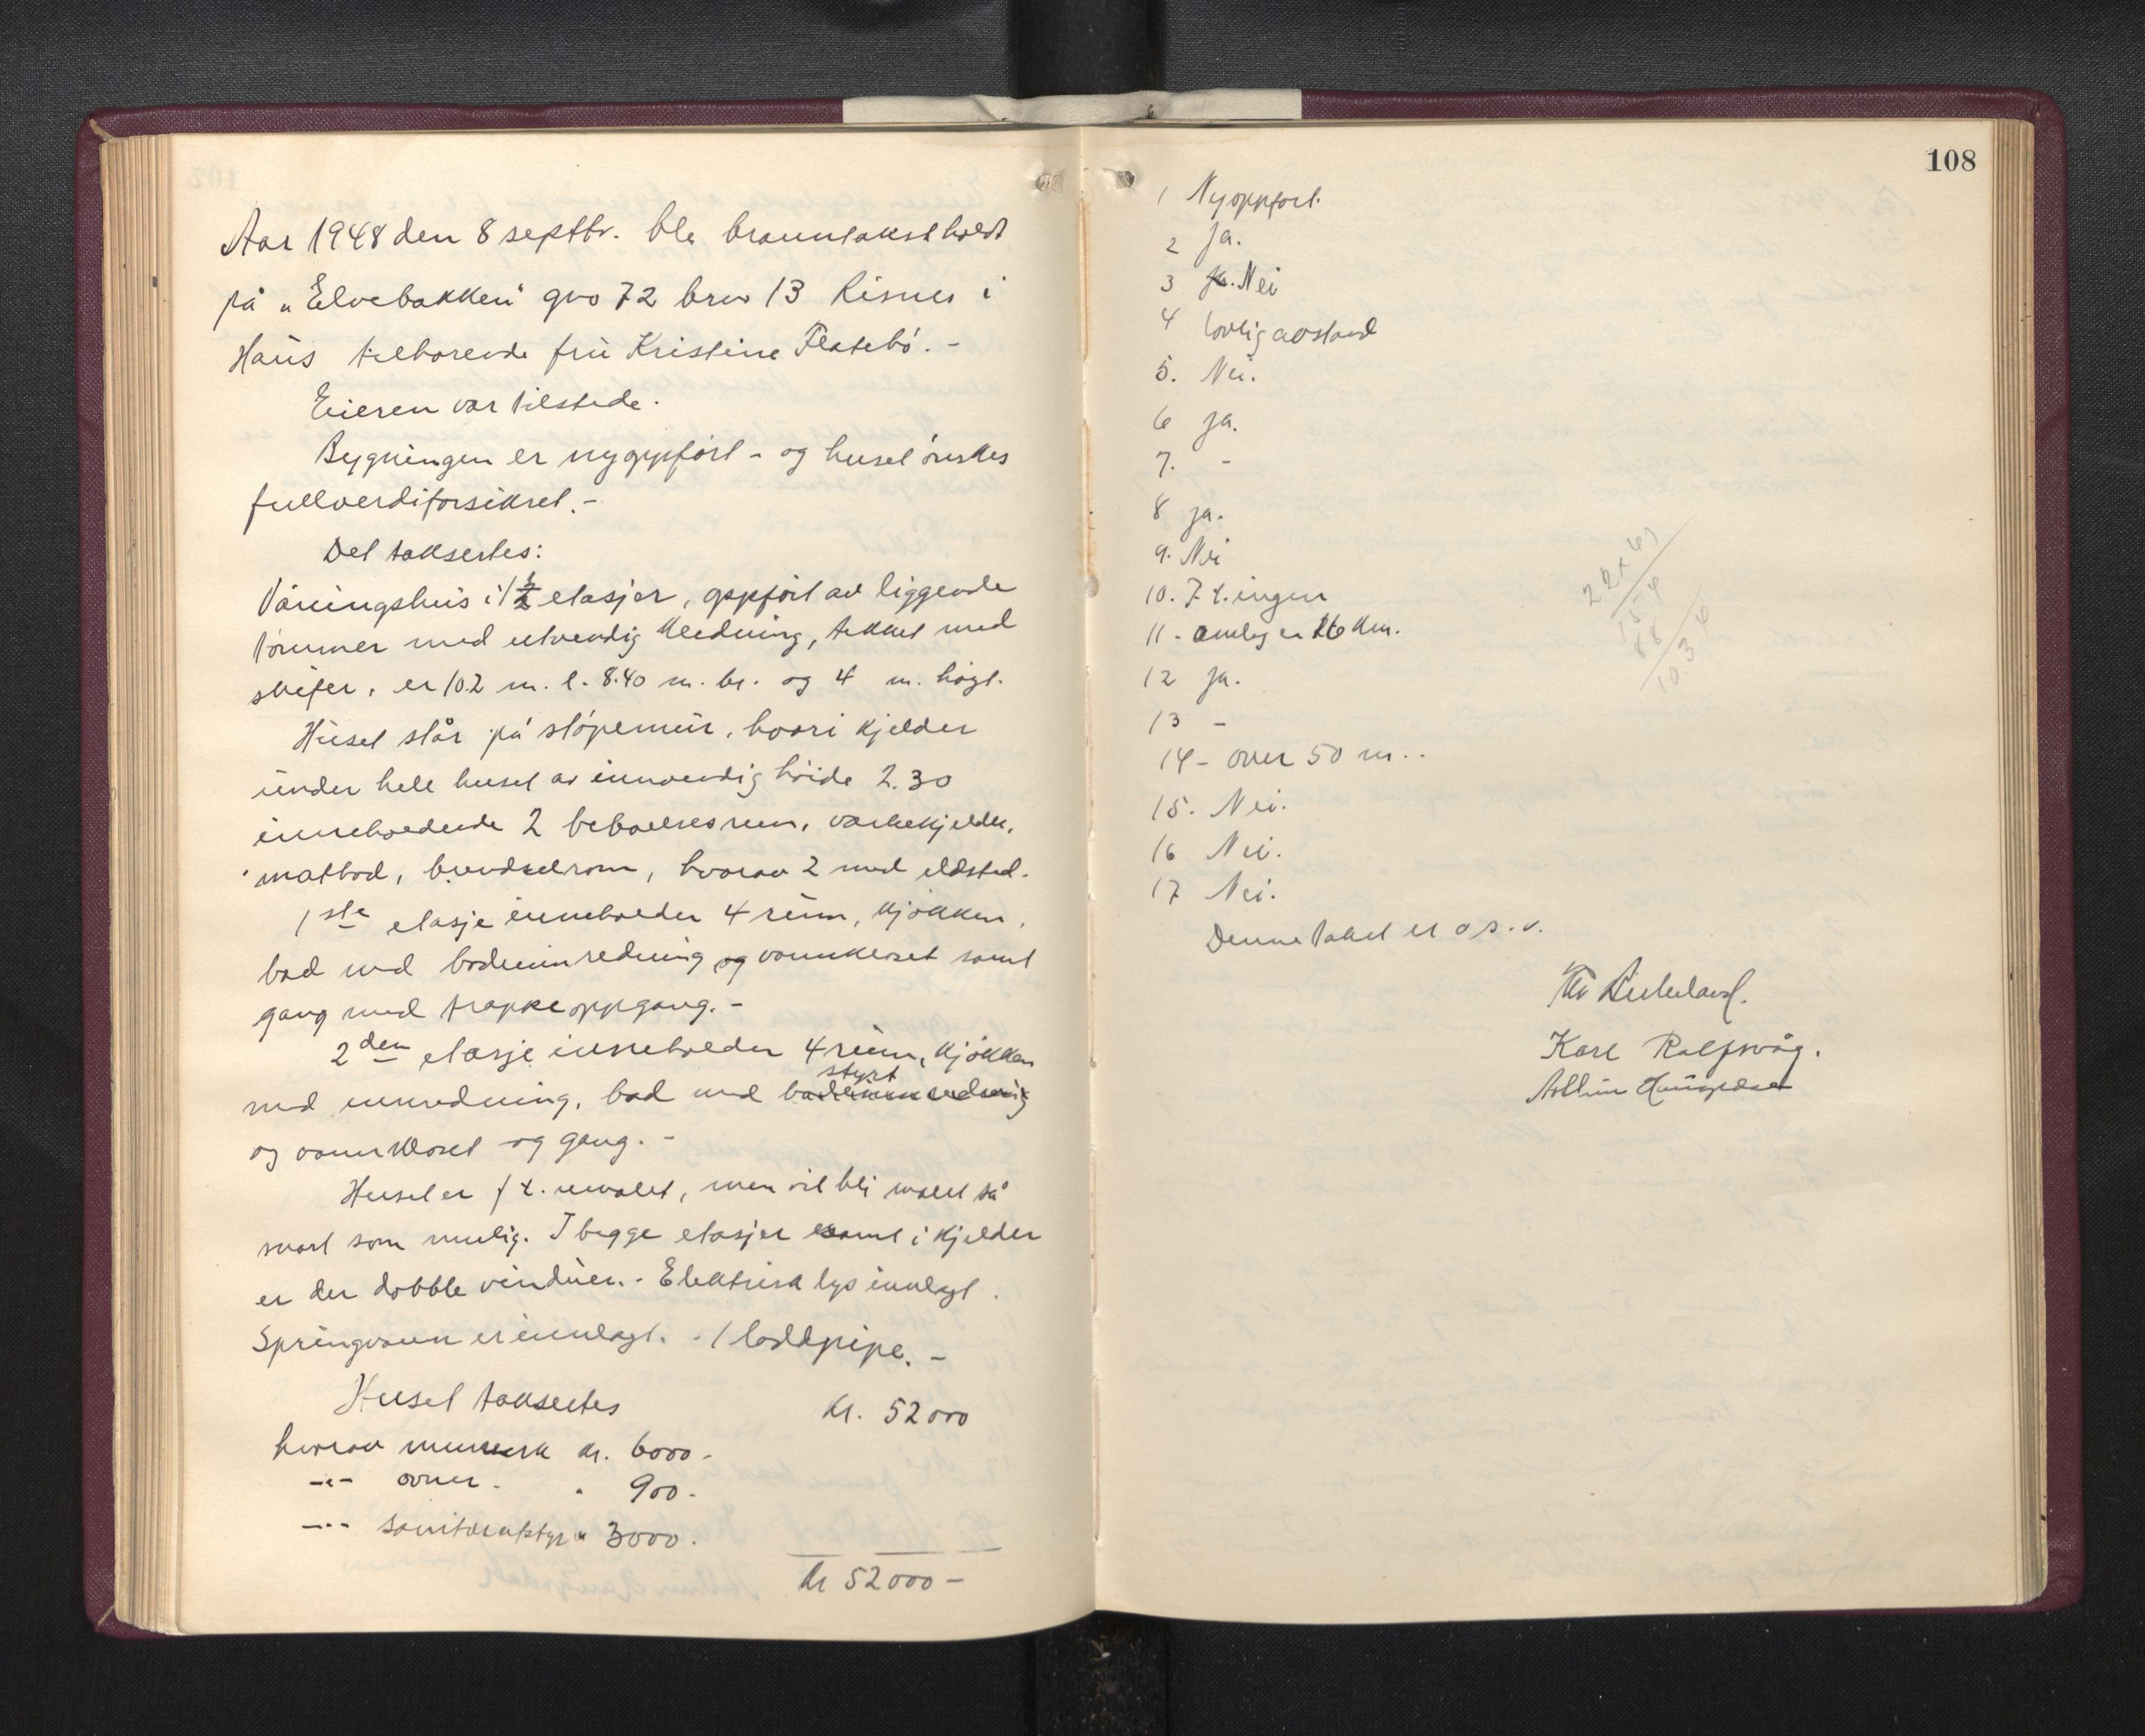 Aar 1948 den 8 septbr. ble branntakst holdt
på „Elvebakken" gno 72 brno 13 Risnes i
Haus tilhørende fru Kristine Flatebö. -
Eieren var tilstede.
Bygningen er nyoppfört - og huset önskes
fullverdiforsikret. -
Det takseres:
Våningshus i 1 1/2 etasjer, oppfört av liggende
tömmer med utvendig kledning, tekket med
skifer, er 10.2 m. l. 8.40 m. br. og 4 m. högt.
Huset står på stöpemur, hvori kjelder
under hele huset av innvendig höide 2.30
inneholdende 2 beboelsesrum, vaskekjelder,
matbod, brendselrom, hvorav 2 med ildsted.
1ste etasje inneholder 4 rum, kjökken,
bad med badeinnredning og vannkloset samt
gang med trappeoppgang. -
2den etasje inneholder 4 rum, kjökken
med innredning, bad med badeinnredning styrt
og vannkloset og gang. -
Huset er f t. umalet, men vil bli malet så
snart som mulig. I begge etasjer samt i kjelder
er der dobble vinduer. - Elektrisk lys innlagt.
Springvann er innlagt. - 1 loddpipe. -
Huset takseres kr. 52000
hvorav murverk kr. 6000 -
-"- ovner - " 900 -
-"- sanitærutstyr " 3000 .
Kr 52000 -
108
1 Nyoppfört.
2 Ja.
3 Ja. Nei
4 lovlig avstand
5. Nei.
6 Ja.
7. -
8 Ja.
9. Nei
10. F t. ingen
11 - omlag 16 km.
12 Ja.
13 -
14 - over 50 m. .
15. Nei.
16 Nei.
17 Nei.
Denne takst er o s. v.
Karl Rolfsvåg.